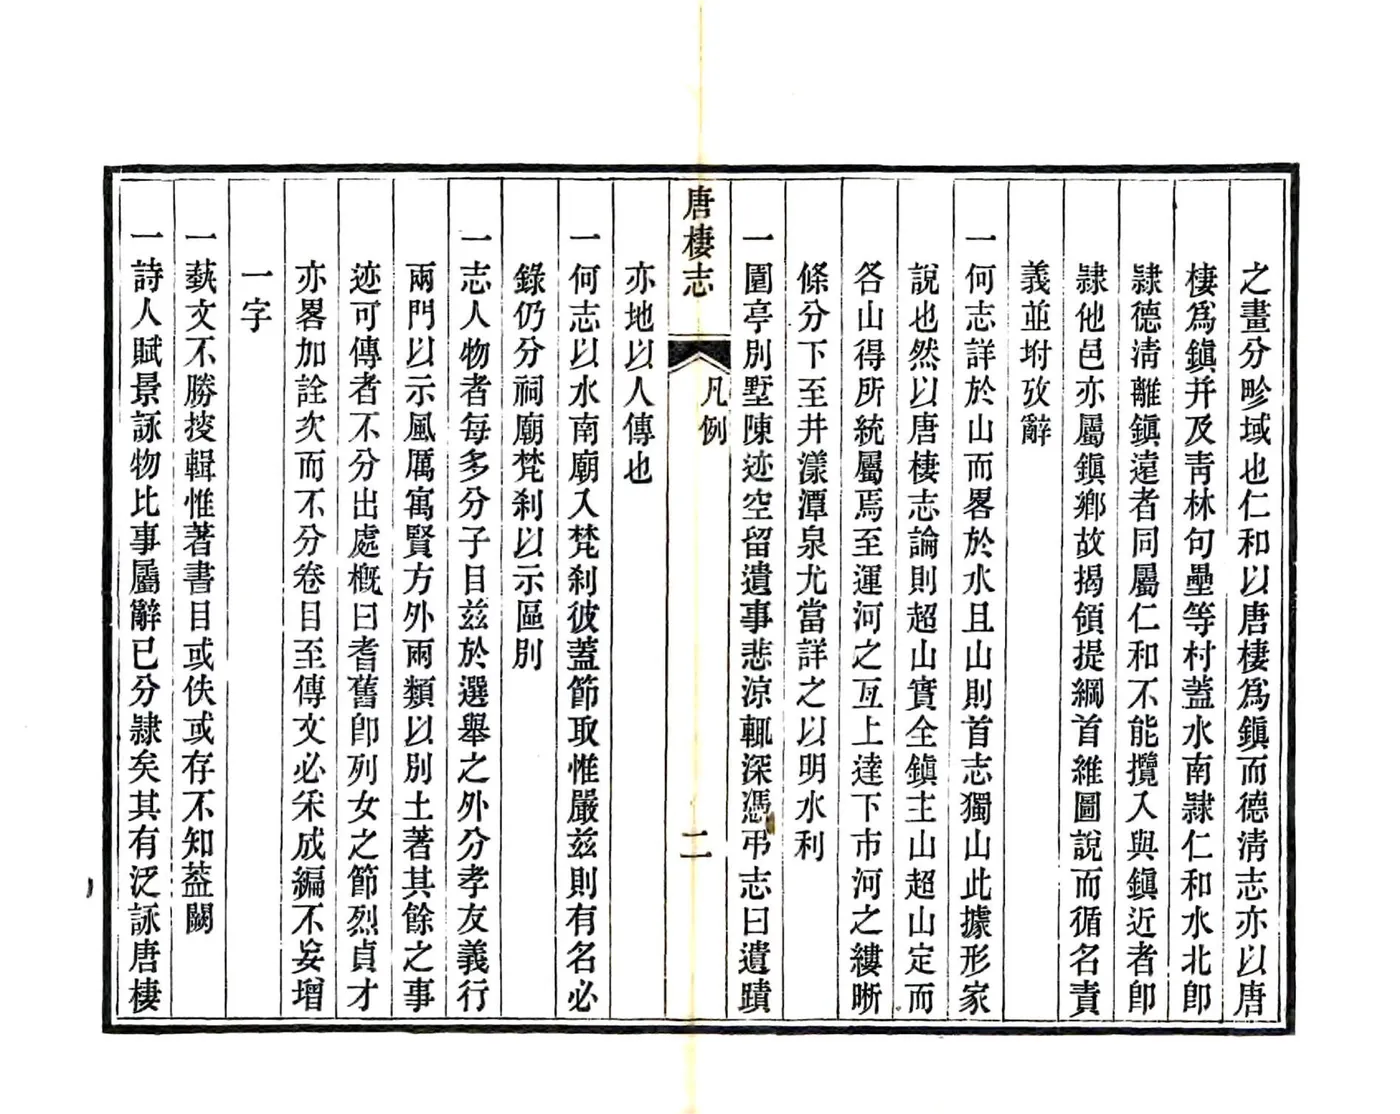 之畫分畛域也仁和以唐棲爲鎭而德淸志亦以唐
棲爲鎭幷及靑林句壘等村蓋水南隸仁和水北卽
隸德淸離鎭遠者同屬仁和不能攬入與鎭近者卽
隸他邑亦屬鎭鄕故揭領提綱首維圖說而循名責
義並坿攷辭
一何志詳於山而畧於水且山則首志獨山此據形家
說也然以唐棲志論則超山實全鎭主山超山定而
各山得所統屬焉至運河之亙上達下市河之縷晰
條分下至井漾潭泉尤當詳之以明水利
一園亭別墅陳迹空留遺事悲涼輒深憑弔志曰遺蹟
唐棲志
凡例
二
亦地以人傳也
一何志以水南廟入梵刹彼蓋節取惟嚴茲則有名必
錄仍分祠廟梵刹以示區別
一志人物者每多分子目茲於選舉之外分孝友義行
兩門以示風厲寓賢方外兩類以別土著其餘之事
迹可傳者不分出處槪曰耆舊卽列女之節烈貞才
亦畧加詮次而不分卷目至傳文必采成編不妄增
一字
一藝文不勝搜輯惟著書目或佚或存不知葢闕
一詩人賦景詠物比事屬辭已分隸矣其有泛詠唐棲